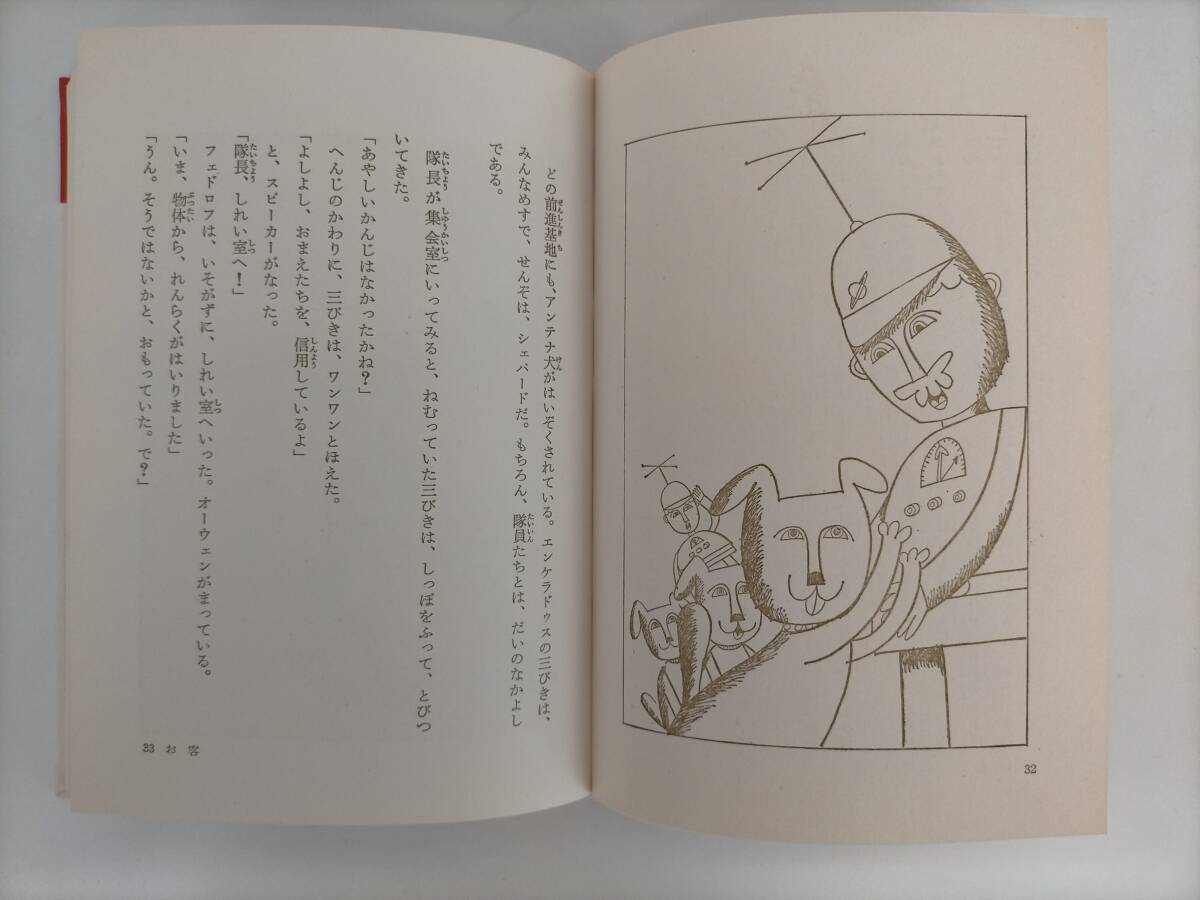 32
どの前進基地にも、アンテナ犬がはいぞくされている。エンケラドゥスの三びきは、
みんなめすで、せんぞは、シェパードだ。もちろん、隊員たちとは、だいのなかよし
である。
隊長が集会室にいってみると、ねむっていた三びきは、しっぽをふって、とびつ
いてきた。
「あやしいかんじはなかったかね？」
へんじのかわりに、三びきは、ワンワンとほえた。
「よしよし、おまえたちを、信用しているよ」
と、スピーカーがなった。
「隊長、しれい室へ！」
フェドロフは、いそがずに、しれい室へいった。オーウェンがまっている。
「いま、物体から、れんらくがはいりました」
「うん。そうではないかと、おもっていた。で？」
33 お客